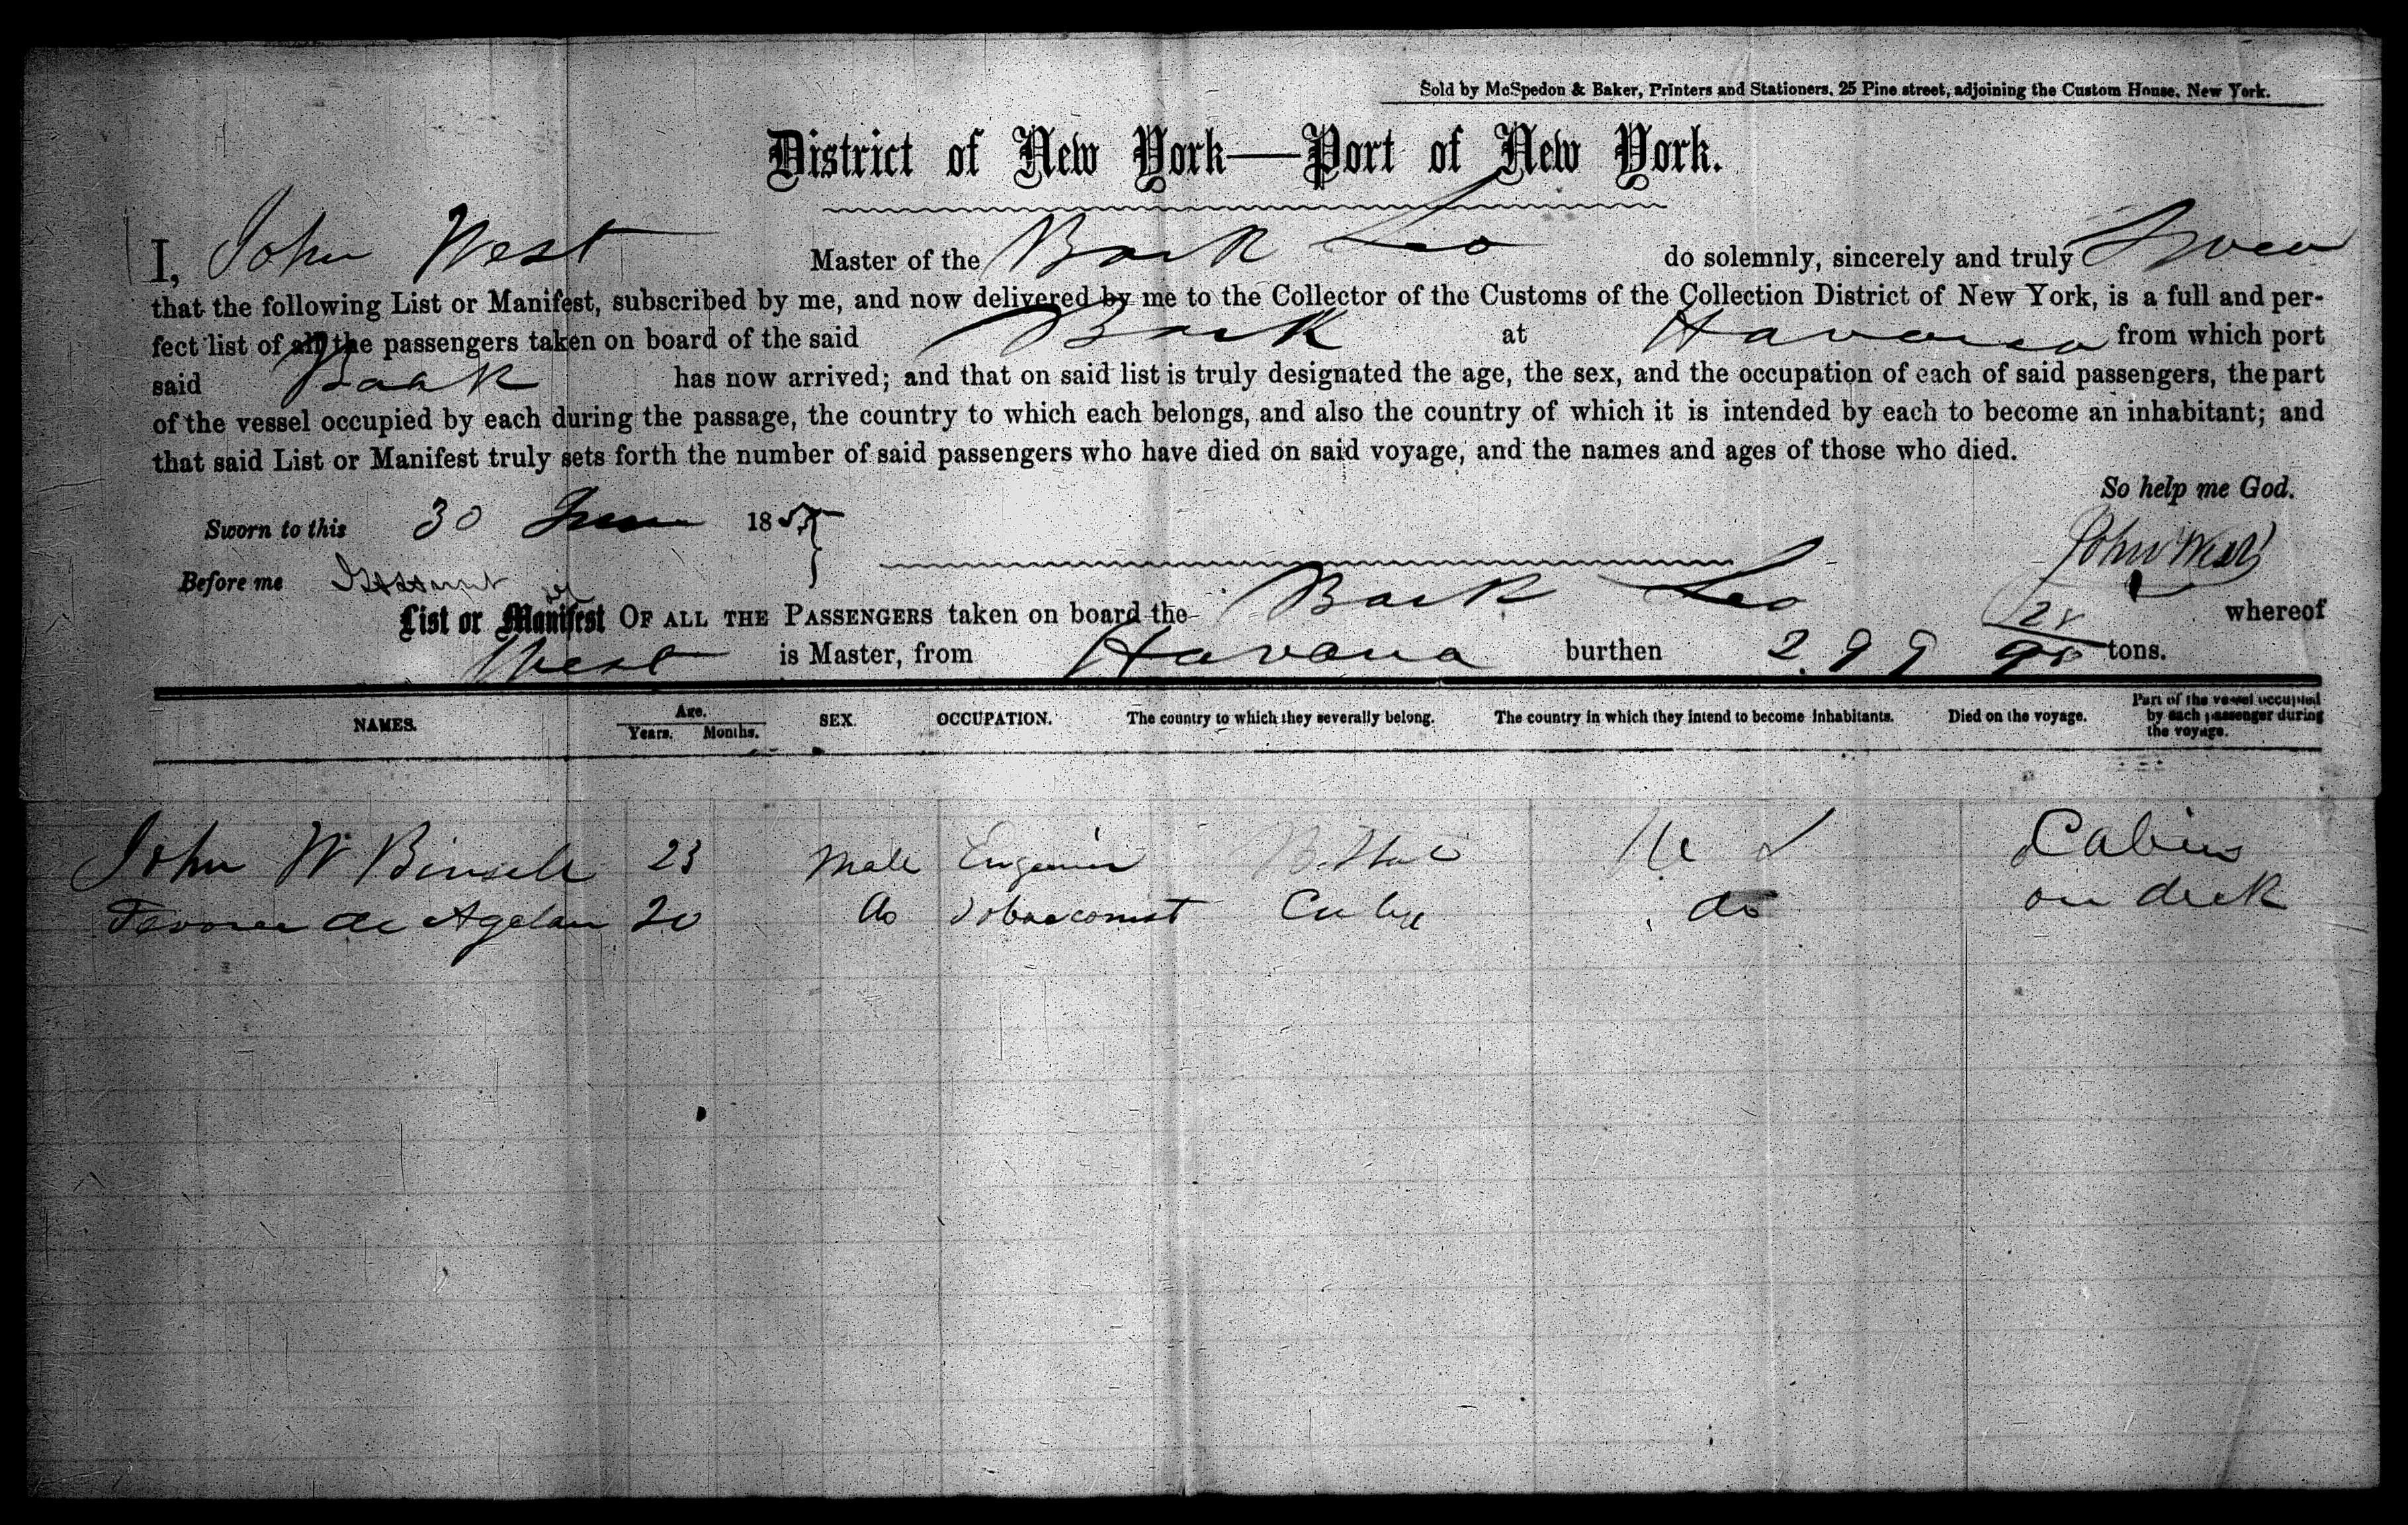 Sold by McSpedon & Baker, Printers and Stationers, 25 Pine street, adjoining the Custom House, New York.
District of New York—Port of New York.
I, John West Master of the Bark Leo do solemnly, sincerely and truly Swear
that the following List or Manifest, subscribed by me, and now delivered by me to the Collector of the Customs of the Collection District of New York, is a full and per-
fect list of all the passengers taken on board of the said Bark at Havana from which port
said Bark has now arrived; and that on said list is truly designated the age, the sex, and the occupation of each of said passengers, the part
of the vessel occupied by each during the passage, the country to which each belongs, and also the country of which it is intended by each to become an inhabitant; and
that said List or Manifest truly sets forth the number of said passengers who have died on said voyage, and the names and ages of those who died.
So help me God.
Sworn to this 30 June 185
John West
Before me
List or Manifest OF ALL THE PASSENGERS taken on board the Bark Leo whereof
West is Master, from Havana burthen 299 28/95 tons.
NAMES. Age. Years. Months. SEX. OCCUPATION. The country to which they severally belong. The country in which they intend to become inhabitants. Died on the voyage. Part of the vessel occupied by each passenger during the voyage.
John W 23 Male Engineer U S Cabin
de 20 do Tobacconist Cuba do on deck